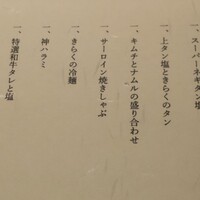 一、スーパーネギタン塩
一、上タン塩ときらくのタン
一、キムチとナムルの盛り合わせ
一、サーロイン焼きしゃぶ
一、きらくの冷麺
一、神ハラミ
一、特選和牛タレと塩